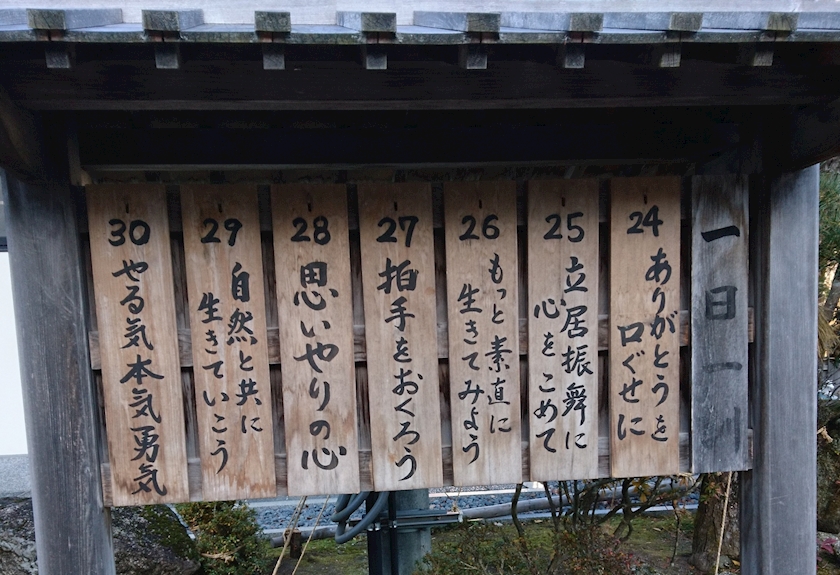 一日一訓
24
ありがとうを
口ぐせに
25
立居振舞に
心をこめて
26
もっと素直に
生きてみよう
27
拍手をおくろう
28
思いやりの心
29
自然と共に
生きていこう
30
やる気本気勇気